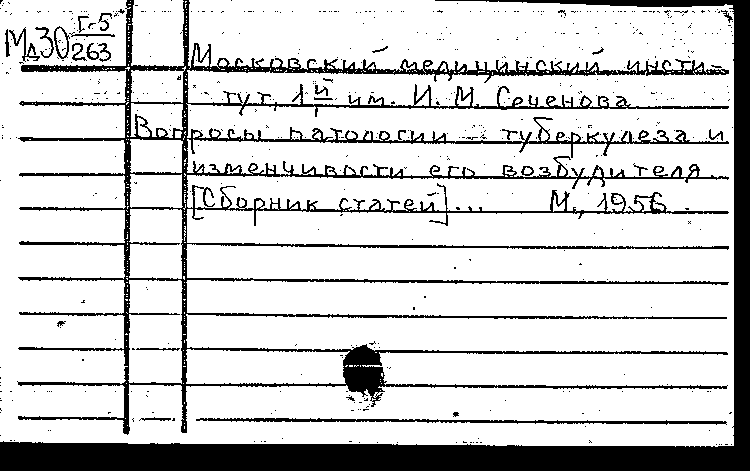 Мд30 Г-5/263
Московский медицинский инсти-
тут, 1й им. И. М. Сеченова
Вопросы патологии туберкулеза и
изменчивости его возбудителя.
[Сборник статей]... М., 1956.